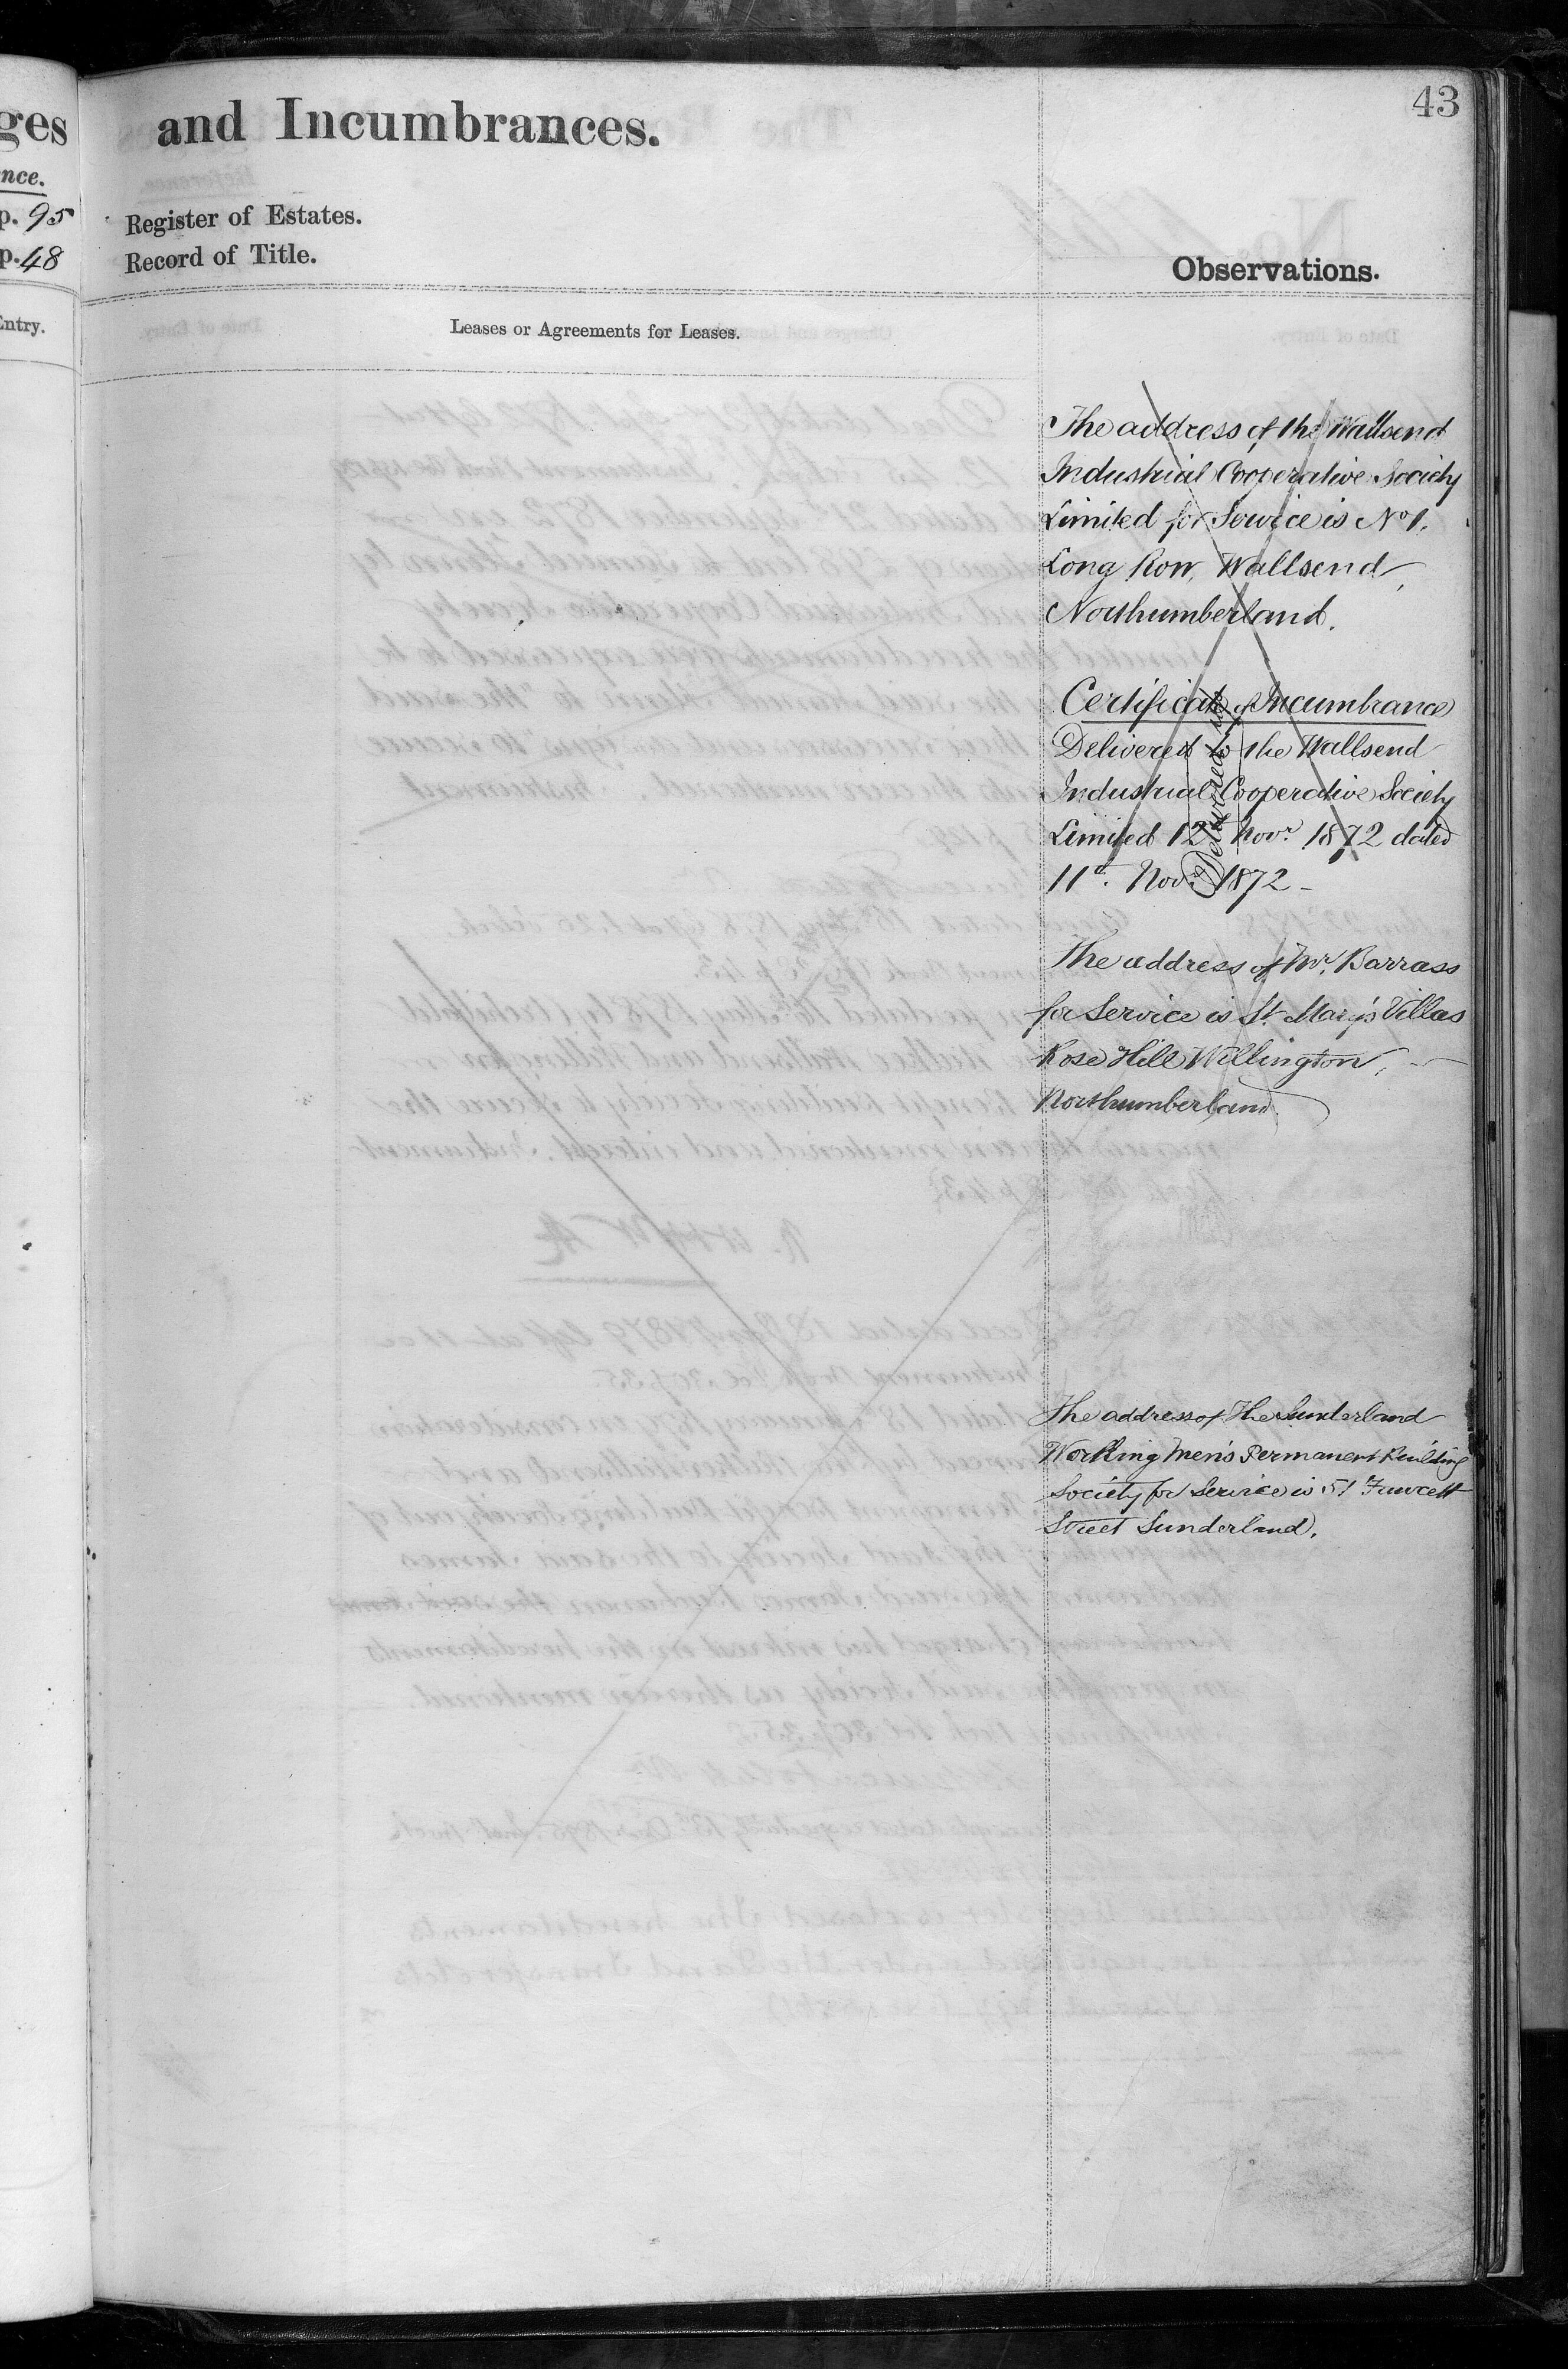 43
ges
and Incumbrances.
nce.
p. 95
Register of Estates.
p. 48
Record of Title.
Observations.
Entry.
Leases or Agreements for Leases.
The address of the Wallsend
Industrial Cooperative Society
Limited for Service is No 1.
Long Row, Wallsend,
Northumberland.
Certificate of Incumbrance
Delivered to the Wallsend
Industrial Cooperative Society
Limited 12 Novr. 1872 dated
11th. Novr. 1872 -
The address of Mr. Barrass
for Service is St. Mary's Villas
Rose Hill Willington,
Northumberland
The address of The Sunderland
Working Men's Permanent Building
Society for Service is 51 Fawcett
Street Sunderland.